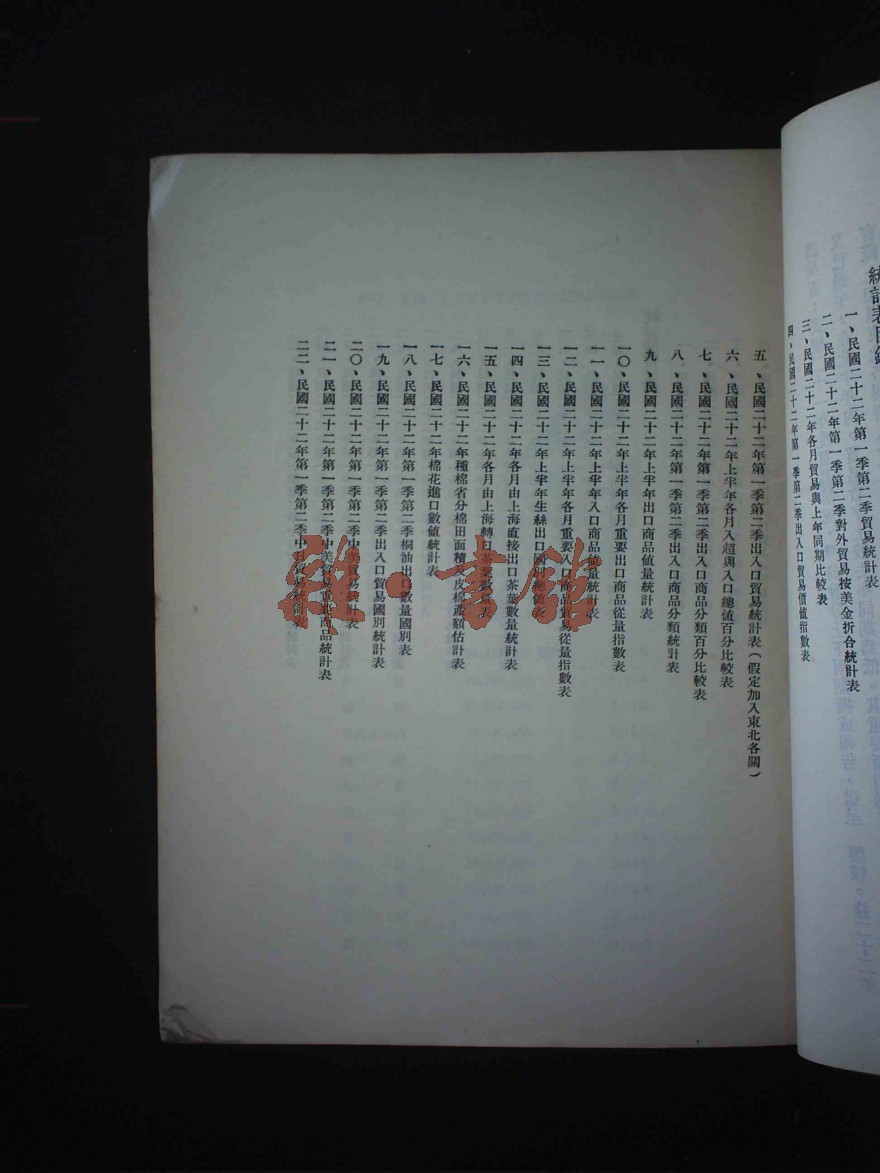 統計表目錄
一、民國二十二年第一季第二季貿易統計表
二、民國二十二年第一季第二季對外貿易按美金折合統計表
三、民國二十二年各月貿易與上年同期比較表
四、民國二十二年第一季第二季出入口貿易價值指數表
五、民國二十二年第一季第二季出入口貿易統計表(假定加入東北各關)
六、民國二十二年上半年各月入超與入口總值百分比較表
七、民國二十二年第一季第二季出入口商品分類百分比較表
八、民國二十二年第一季第二季出入口商品分類統計表
九、民國二十二年上半年出口商品値量統計表
一〇、民國二十二年上半年各月重要出口商品從量指數表
一一、民國二十二年上半年入口商品値量統計表
一二、民國二十二年上半年各月重要入口商品貿易從量指數表
一三、民國二十二年上半年生絲出口國別總值表
一四、民國二十二年各月由上海直接出口茶葉數量統計表
一五、民國二十二年各月由上海轉口茶葉數量表
一六、民國二十二年種棉省分棉田面積及皮棉產額估計表
一七、民國二十二年棉花進口數値統計表
一八、民國二十二年第一季第二季桐油出口數量國別表
一九、民國二十二年第一季第二季出入口貿易國別統計表
二〇、民國二十二年第一季第二季中美貿易統計表
二一、民國二十二年第一季第二季中美貿易重要商品統計表
二二、民國二十二年第一季第二季中日貿易統計表
雜·書館